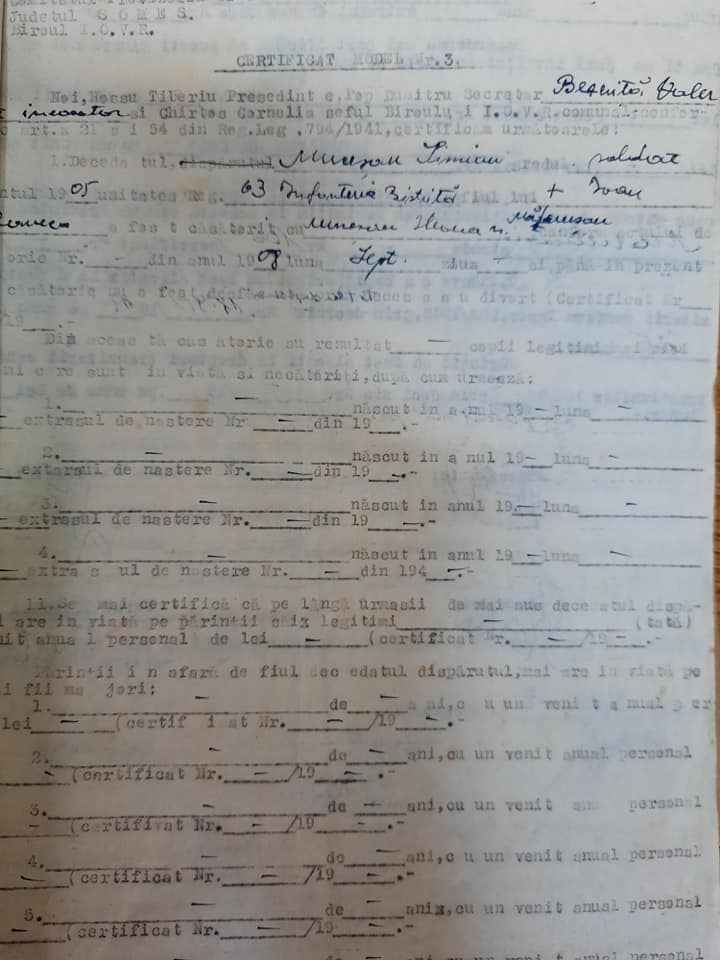 Judetul S O M E S.
Biroul I.O.V.R.
CERTIFICAT MODEL Nr.3.
Noi, Hossu Tiberiu Presedint e, Pop Dumitru Secretar
si Chirtes Cornelia seful Biroulu i I.O.V.R.comunal, confor-
art. 21 si 54 din Reg.Leg .794/1941, certificam urmatoarele:
1.Deceda tul, disparutul Muresan Simion gradul soldat
ntul 1905 unitatea Reg. 63 Infanteria Bistrită fiul lui + Ioan
a fos t căsătorit cu Muresan Ileana n.
orie Nr. — din anul 1908 luna Sept. ziua — si până in prezent
căsătorie nu a fost s a u divort (Certificat Nr
19 .-
Din aceas tă cas ătorie au rezultat — copii legitimi
ni care sunt in viată si necăsătoriti, după cum urmează:
1. — născut in a nul 19 — luna —
extrasul de nastere Nr — din 19 .-
2. — născut in a nul 19 — luna —
extarsul de nastere Nr. — din 19 — .-
3. — născut in anul 19 — luna —
— extrasul de nastere Nr. — din 19 — .-
4. — născut in anul 19 — luna —
— extra s ul de nastere Nr. — din 194 — .-
11.Se mai certifică că pe lîngă urmasii de mai sus dece atul dispă-
are in viată pe părintii săix legitimi — (tată)
nit anua l personal de lei — (certificat Nr. — /19 — .-
Părintii i n afară de fiul dec edatul dispărutul, mai are in viată pe
i fii ma jori:
1. — de — a ni, c u un veni t a nual p er
lei — (certif i at Nr. — /19 — .-
2. — de — ani, cu un venit anual personal
— (certificat Nr. — /19 — .-
3. — de — ani, cu un venit anu personal
— (certifivat Nr. — /19 — .-
4. — de — ani, c u un venit anual personal
— (certificat Nr. — /19 — .-
5. — de — anix, cu un venit anual personal
— (certificat Nr. — /19 — .-